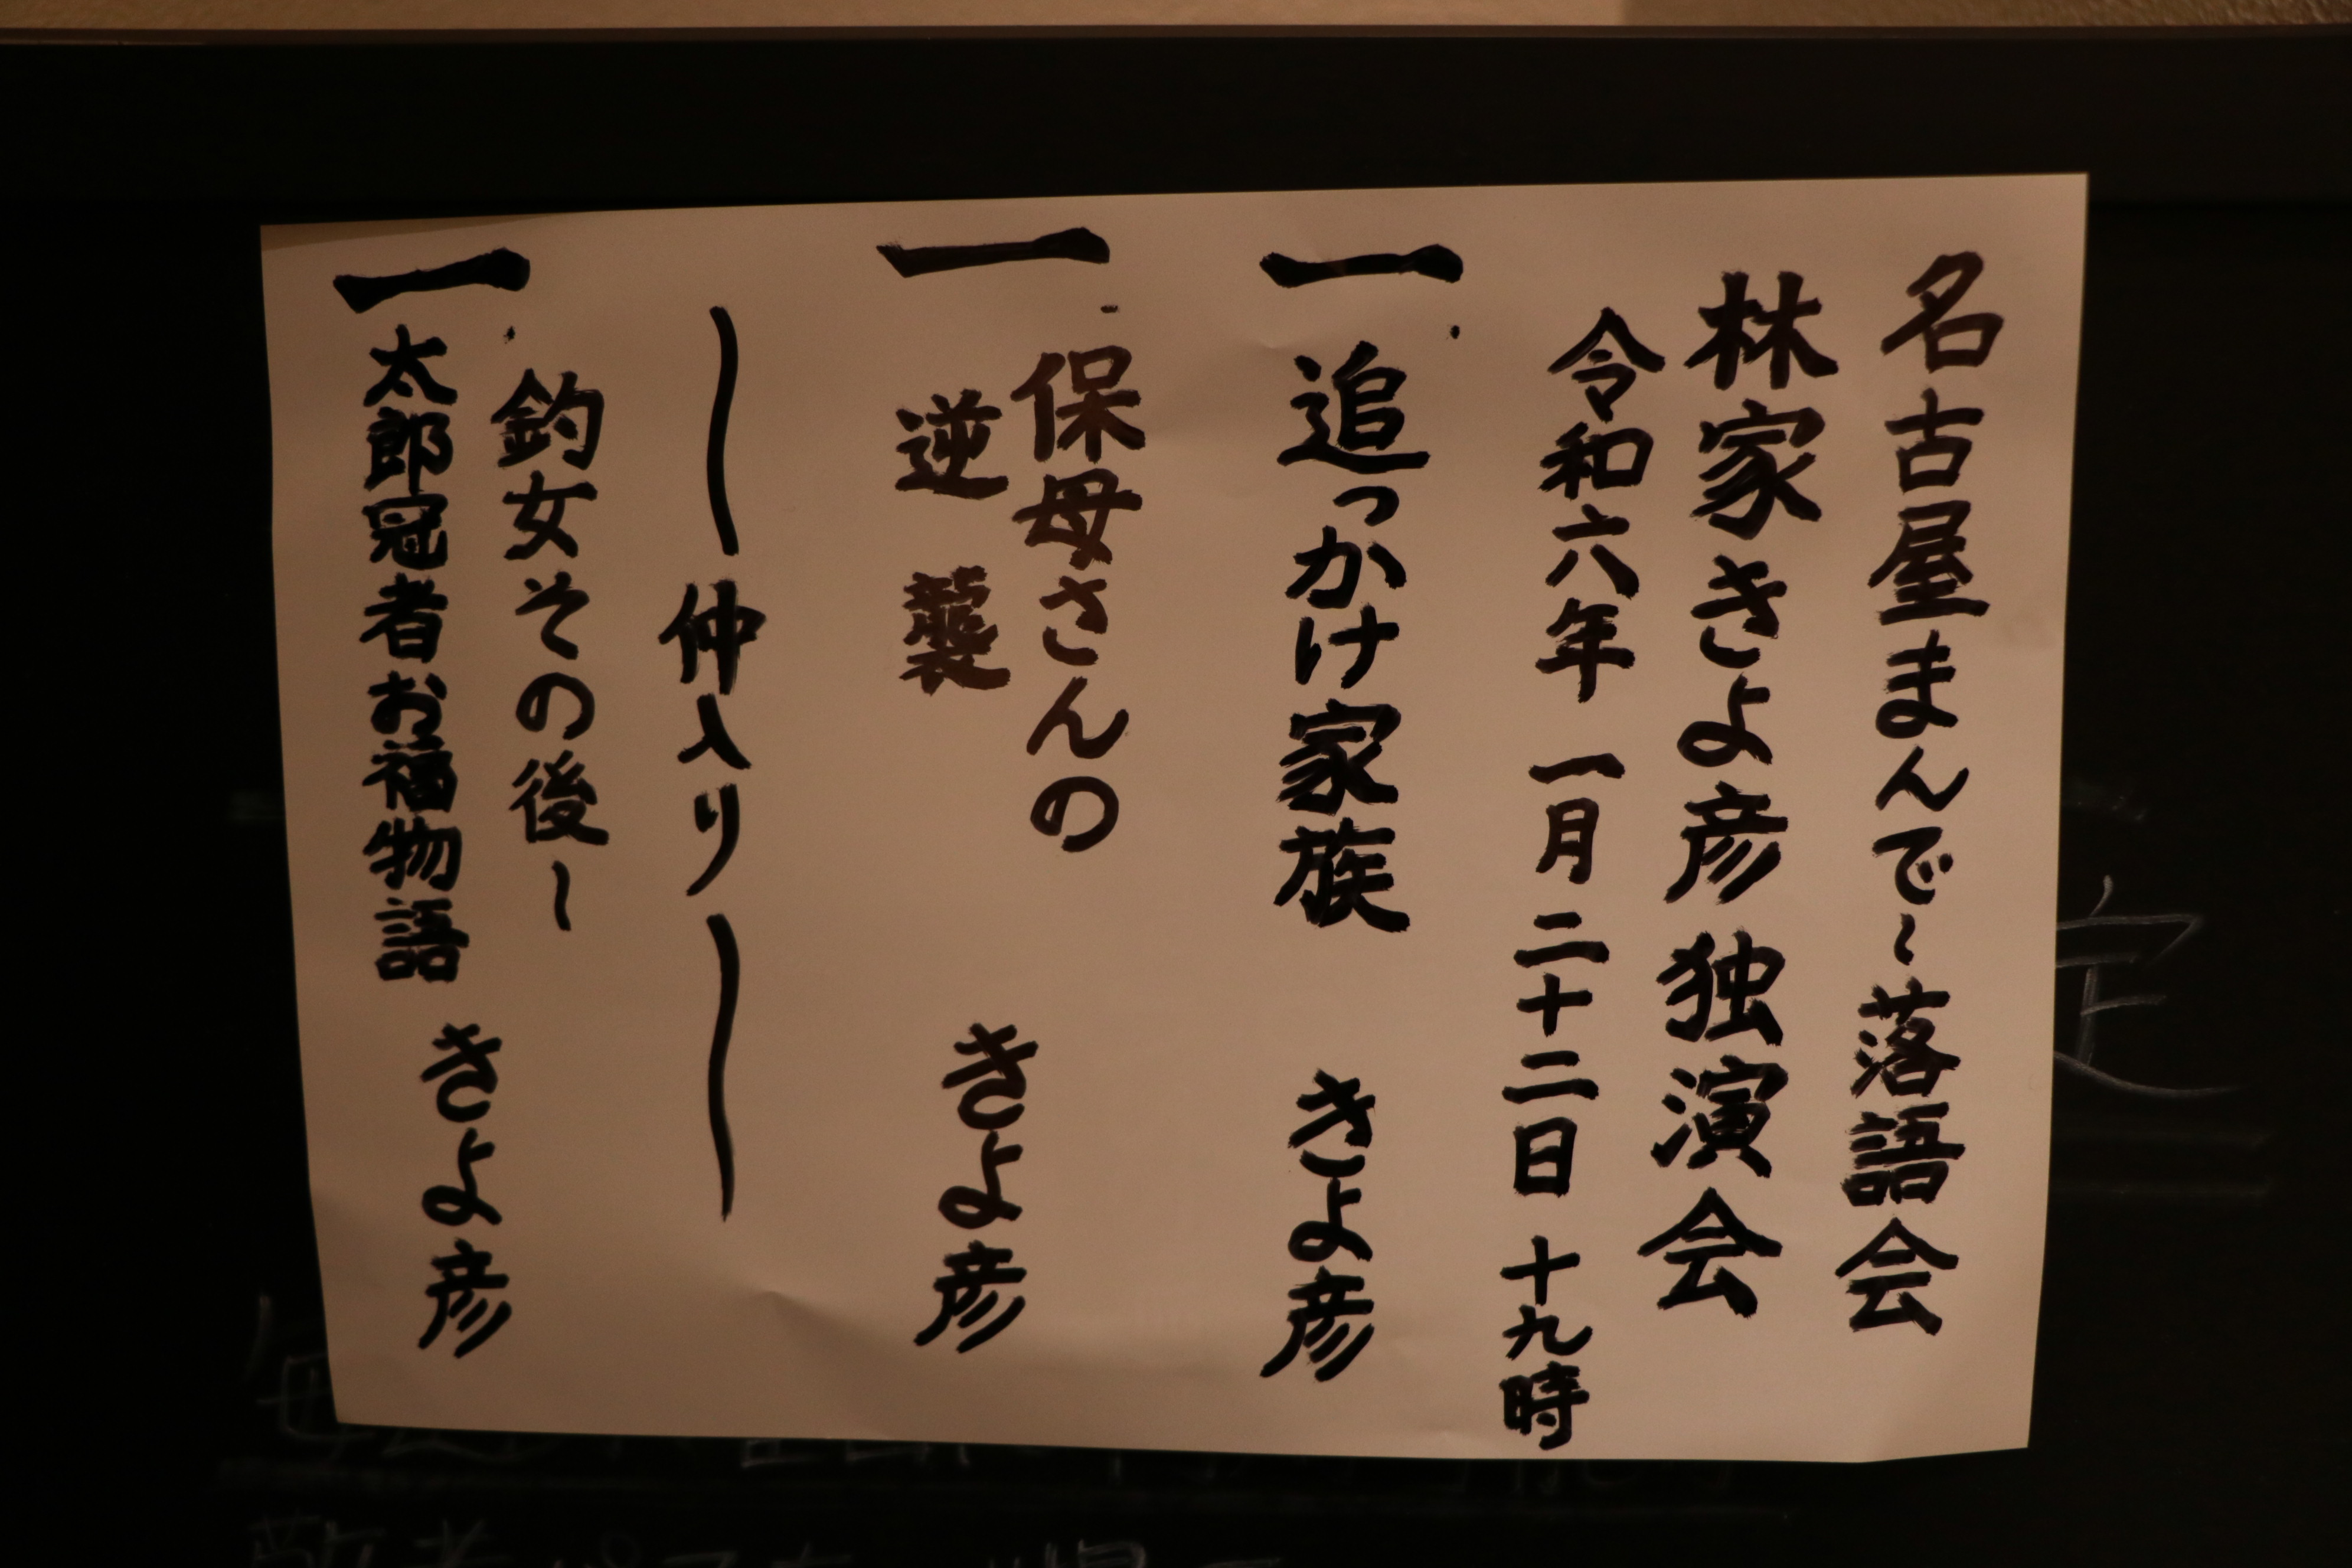 名古屋まんで~落語会
林家きよ彦 独演会
令和六年 一月二十二日 十九時
一、追っかけ家族 きよ彦
一、保母さんの
逆襲 きよ彦
〜仲入り〜
一、釣女その後~
太郎冠者お福物語 きよ彦
定